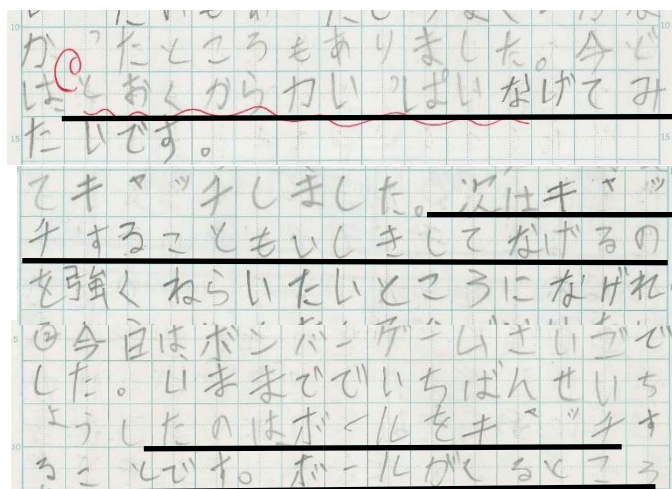 かったところもありました。今ど
はとおくから力いっぱいなげてみ
たいです。
てキャッチしました。次はキャッ
チすることもいしきしてなげるの
を強くねらいたいところになげれ
②今日はボンバーゲームさいごで
した。いままででいちばんせいち
ょうしたのはボールをキャッチす
ることです。ボールがくるところ